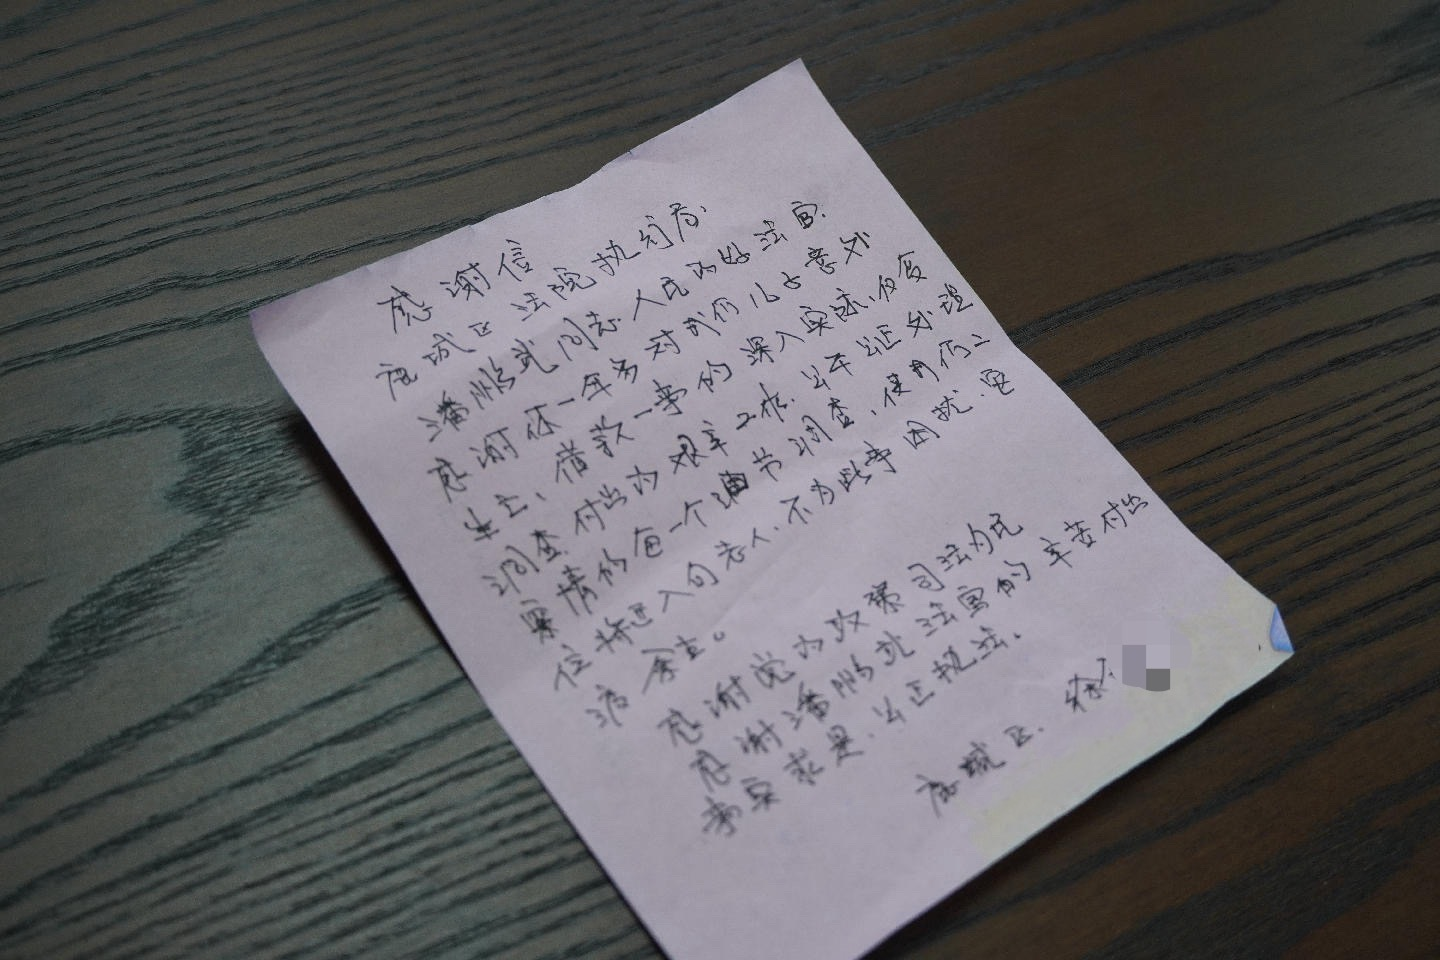 感谢信
鹿城区法院执行局.
潘鹏武同志.人民的好法官.
感谢你一年多对我们儿子意外
生亡、借款一事的深入实际、仅复
调查付出的艰辛工作.公平公正处理
案情的每一个细节调查,使我们二
位将近入旬老人.不为此事困扰.
活余生。
感谢党的政策司法为民
感谢潘鹏武法官的辛苦付出
事实求是.公正执法.
鹿城区.徐